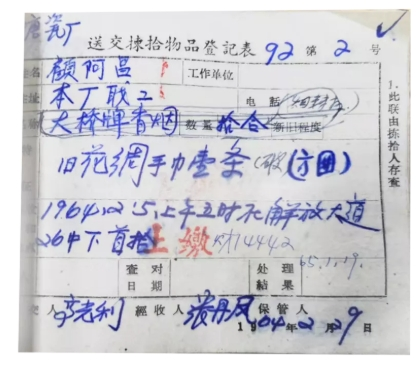 唐瓷厂
送交揀拾物品登記表 92 第 2 号
姓名 顧阿昌 工作單位
本厂职工 电話
大桥牌香烟 数量 拾合 新旧程度
旧花綢手巾壹条 (破) (方图)
1964.12.5,上午五时在解放大道
264下首拾 上繳 14442
查对日期 处理結果 65.1.19.
經收人 張丹凤 保管人
1964年2月29日
1.此联由拣拾人存查